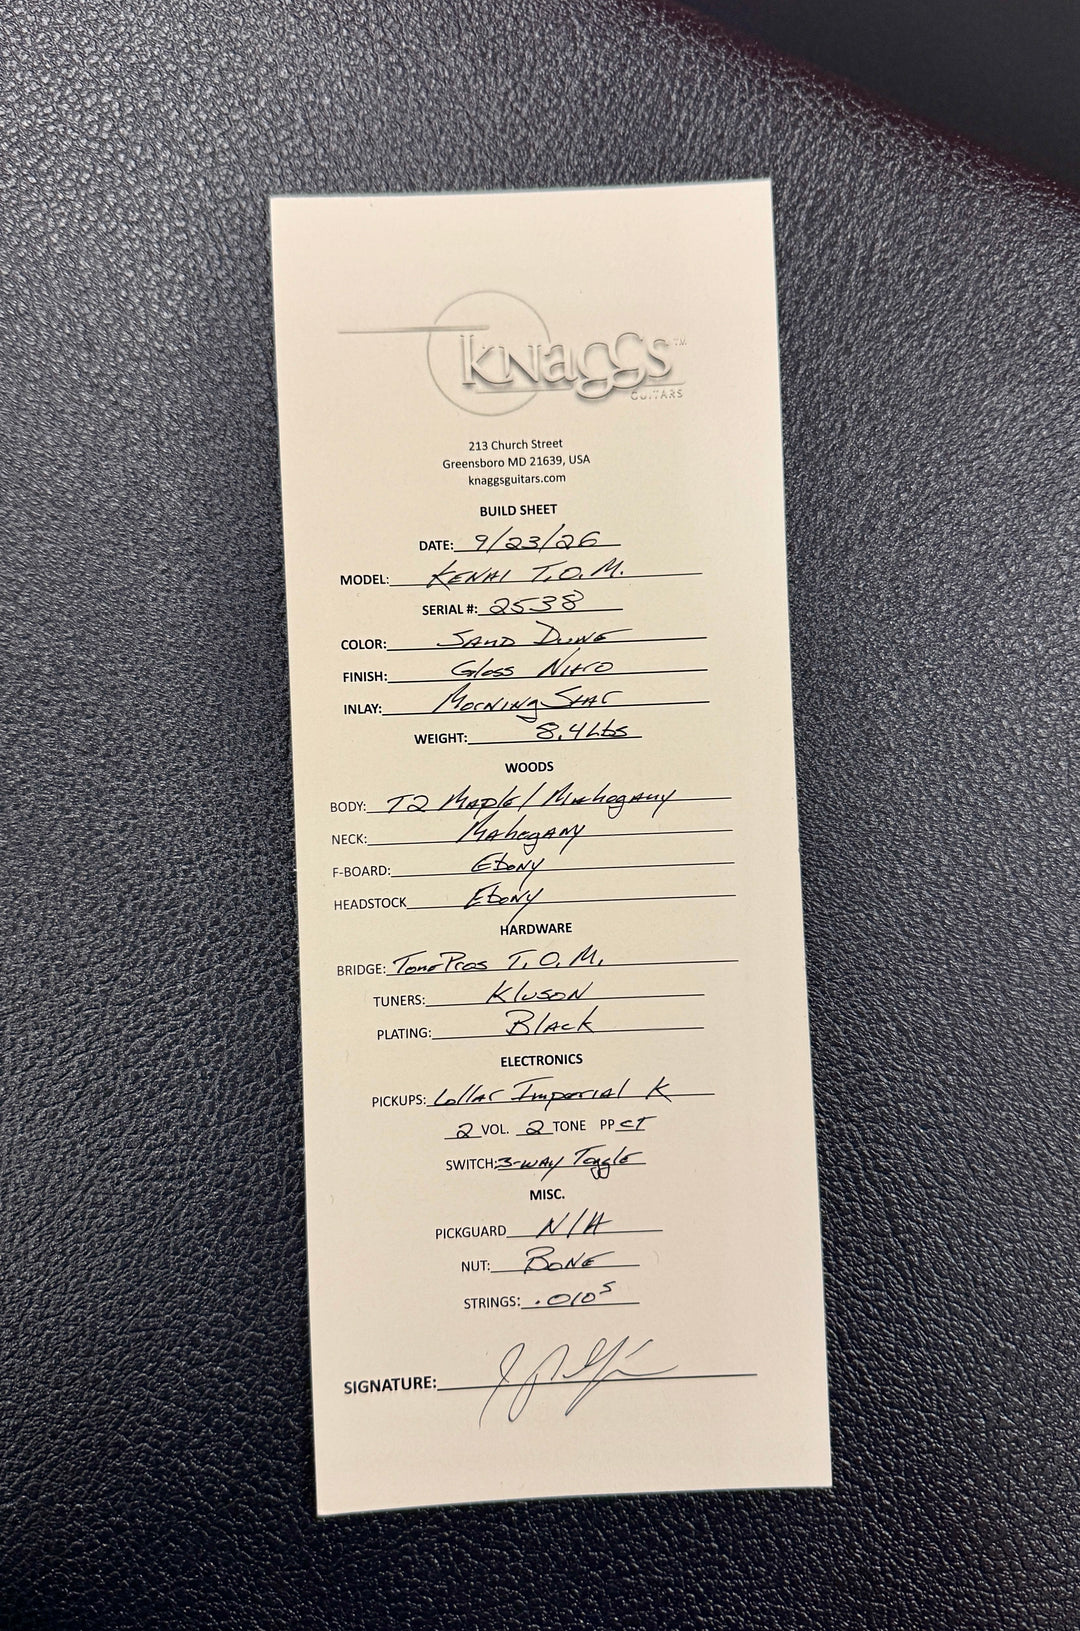 Knaggs™
GUITARS
213 Church Street
Greensboro MD 21639, USA
knaggsguitars.com
BUILD SHEET
DATE: 9/23/26
MODEL: KENAI T.O.M.
SERIAL #: 2538
COLOR: SAND DUNE
FINISH: Gloss Nitro
INLAY: Morning Star
WEIGHT: 8.4 Lbs
WOODS
BODY: T2 Maple / Mahogany
NECK: Mahogany
F-BOARD: Ebony
HEADSTOCK Ebony
HARDWARE
BRIDGE: TonePros T.O.M.
TUNERS: Kluson
PLATING: Black
ELECTRONICS
PICKUPS: Lollar Imperial K
2 VOL. 2 TONE PP CT
SWITCH: 3-WAY Toggle
MISC.
PICKGUARD N/A
NUT: BONE
STRINGS: .010s
SIGNATURE: